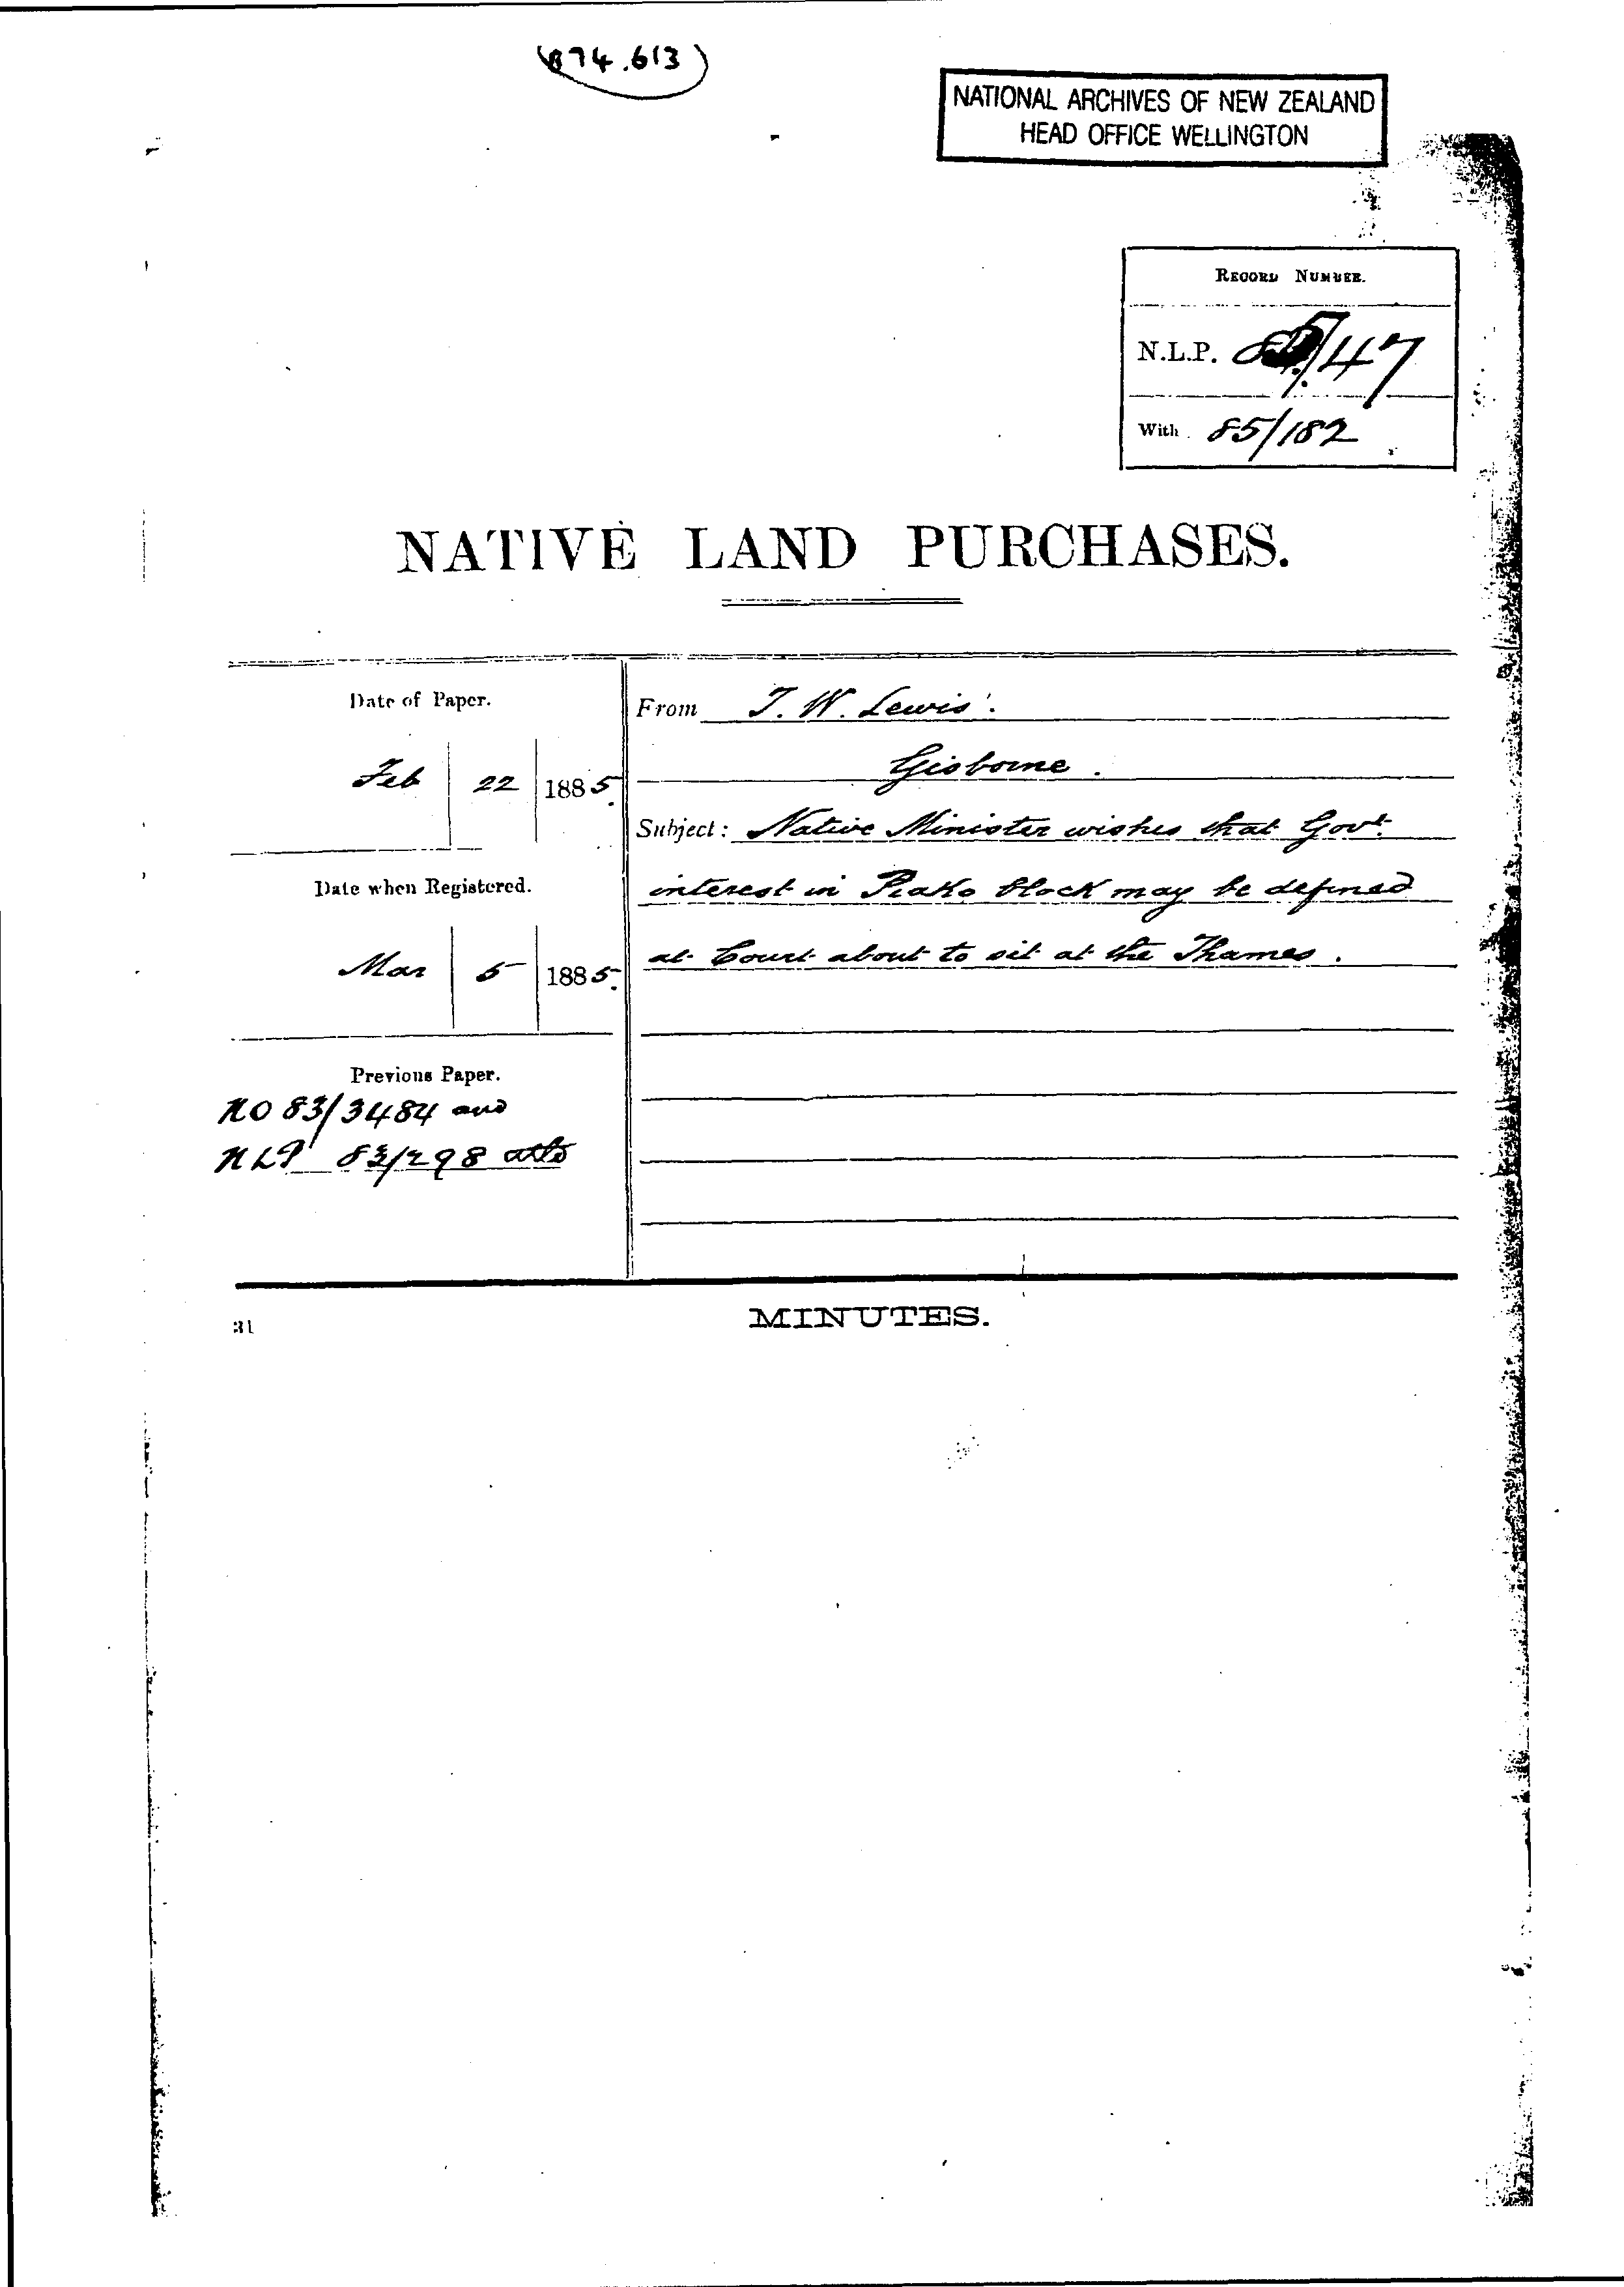 (874.613)
NATIONAL ARCHIVES OF NEW ZEALAND
HEAD OFFICE WELLINGTON
RECORD NUMBER.
N.L.P. 85/47
With 85/182
NATIVE LAND PURCHASES.
Date of Paper.
Feb 22 1885.
Date when Registered.
Mar 5 1885.
Previous Paper.
NO 83/3484 and
NLP 83/298 atts
From T. W. Lewis.
Gisborne.
Subject: Native Minister wishes that Govt.
interest in Piako block may be defined
at Court about to sit at the Thames.
31
MINUTES.